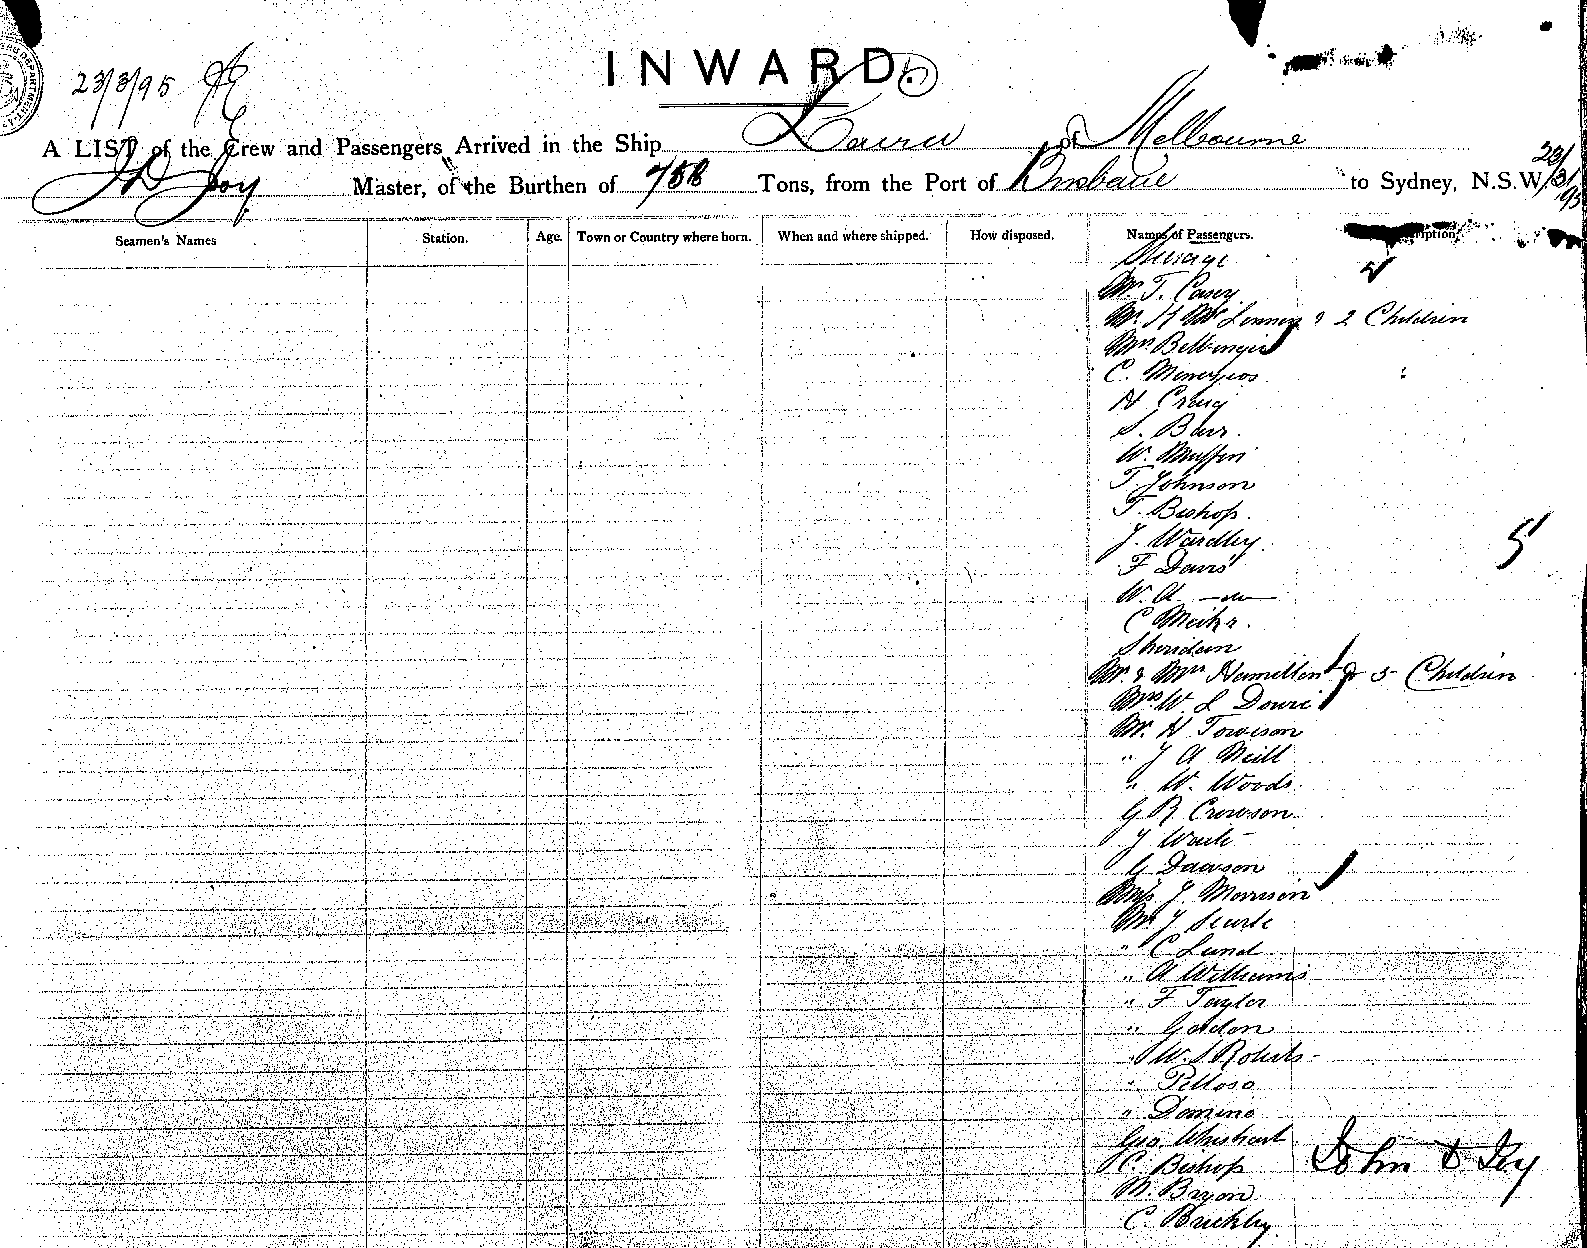 INWARD.
23/3/95
A LIST of the Crew and Passengers Arrived in the Ship of Melbourne
J D Joy Master, of the Burthen of 758 Tons, from the Port of Brisbane to Sydney, N.S.W. 23/3/95
Seamen's Names Station. Age. Town or Country where born. When and where shipped. How disposed. Names of Passengers.
Steerage
Mr. T. Casey
Mr. H & 2 Children
C.
H Craig
S. Barr.
W.
T. Johnson
T. Bishop.
J. Wardley.
F Davis
W. A. —do—
C
Sheridan
Mr. & Mrs Hamilton & 5 Children
Mrs. W. L Dowie
Mr. H Towison
" J A Neill
" W. Woods.
G R Crowson
J Waite
G Dawson
Miss J. Morrison
Mr. J Searle
" C Lund
" A Williams
" F Taylor
" Gordon
" W. S Roberts
" Pelloso
" Domino
Geo Whishart
C. Bishop
M. Bryon
C. Brickley.
5